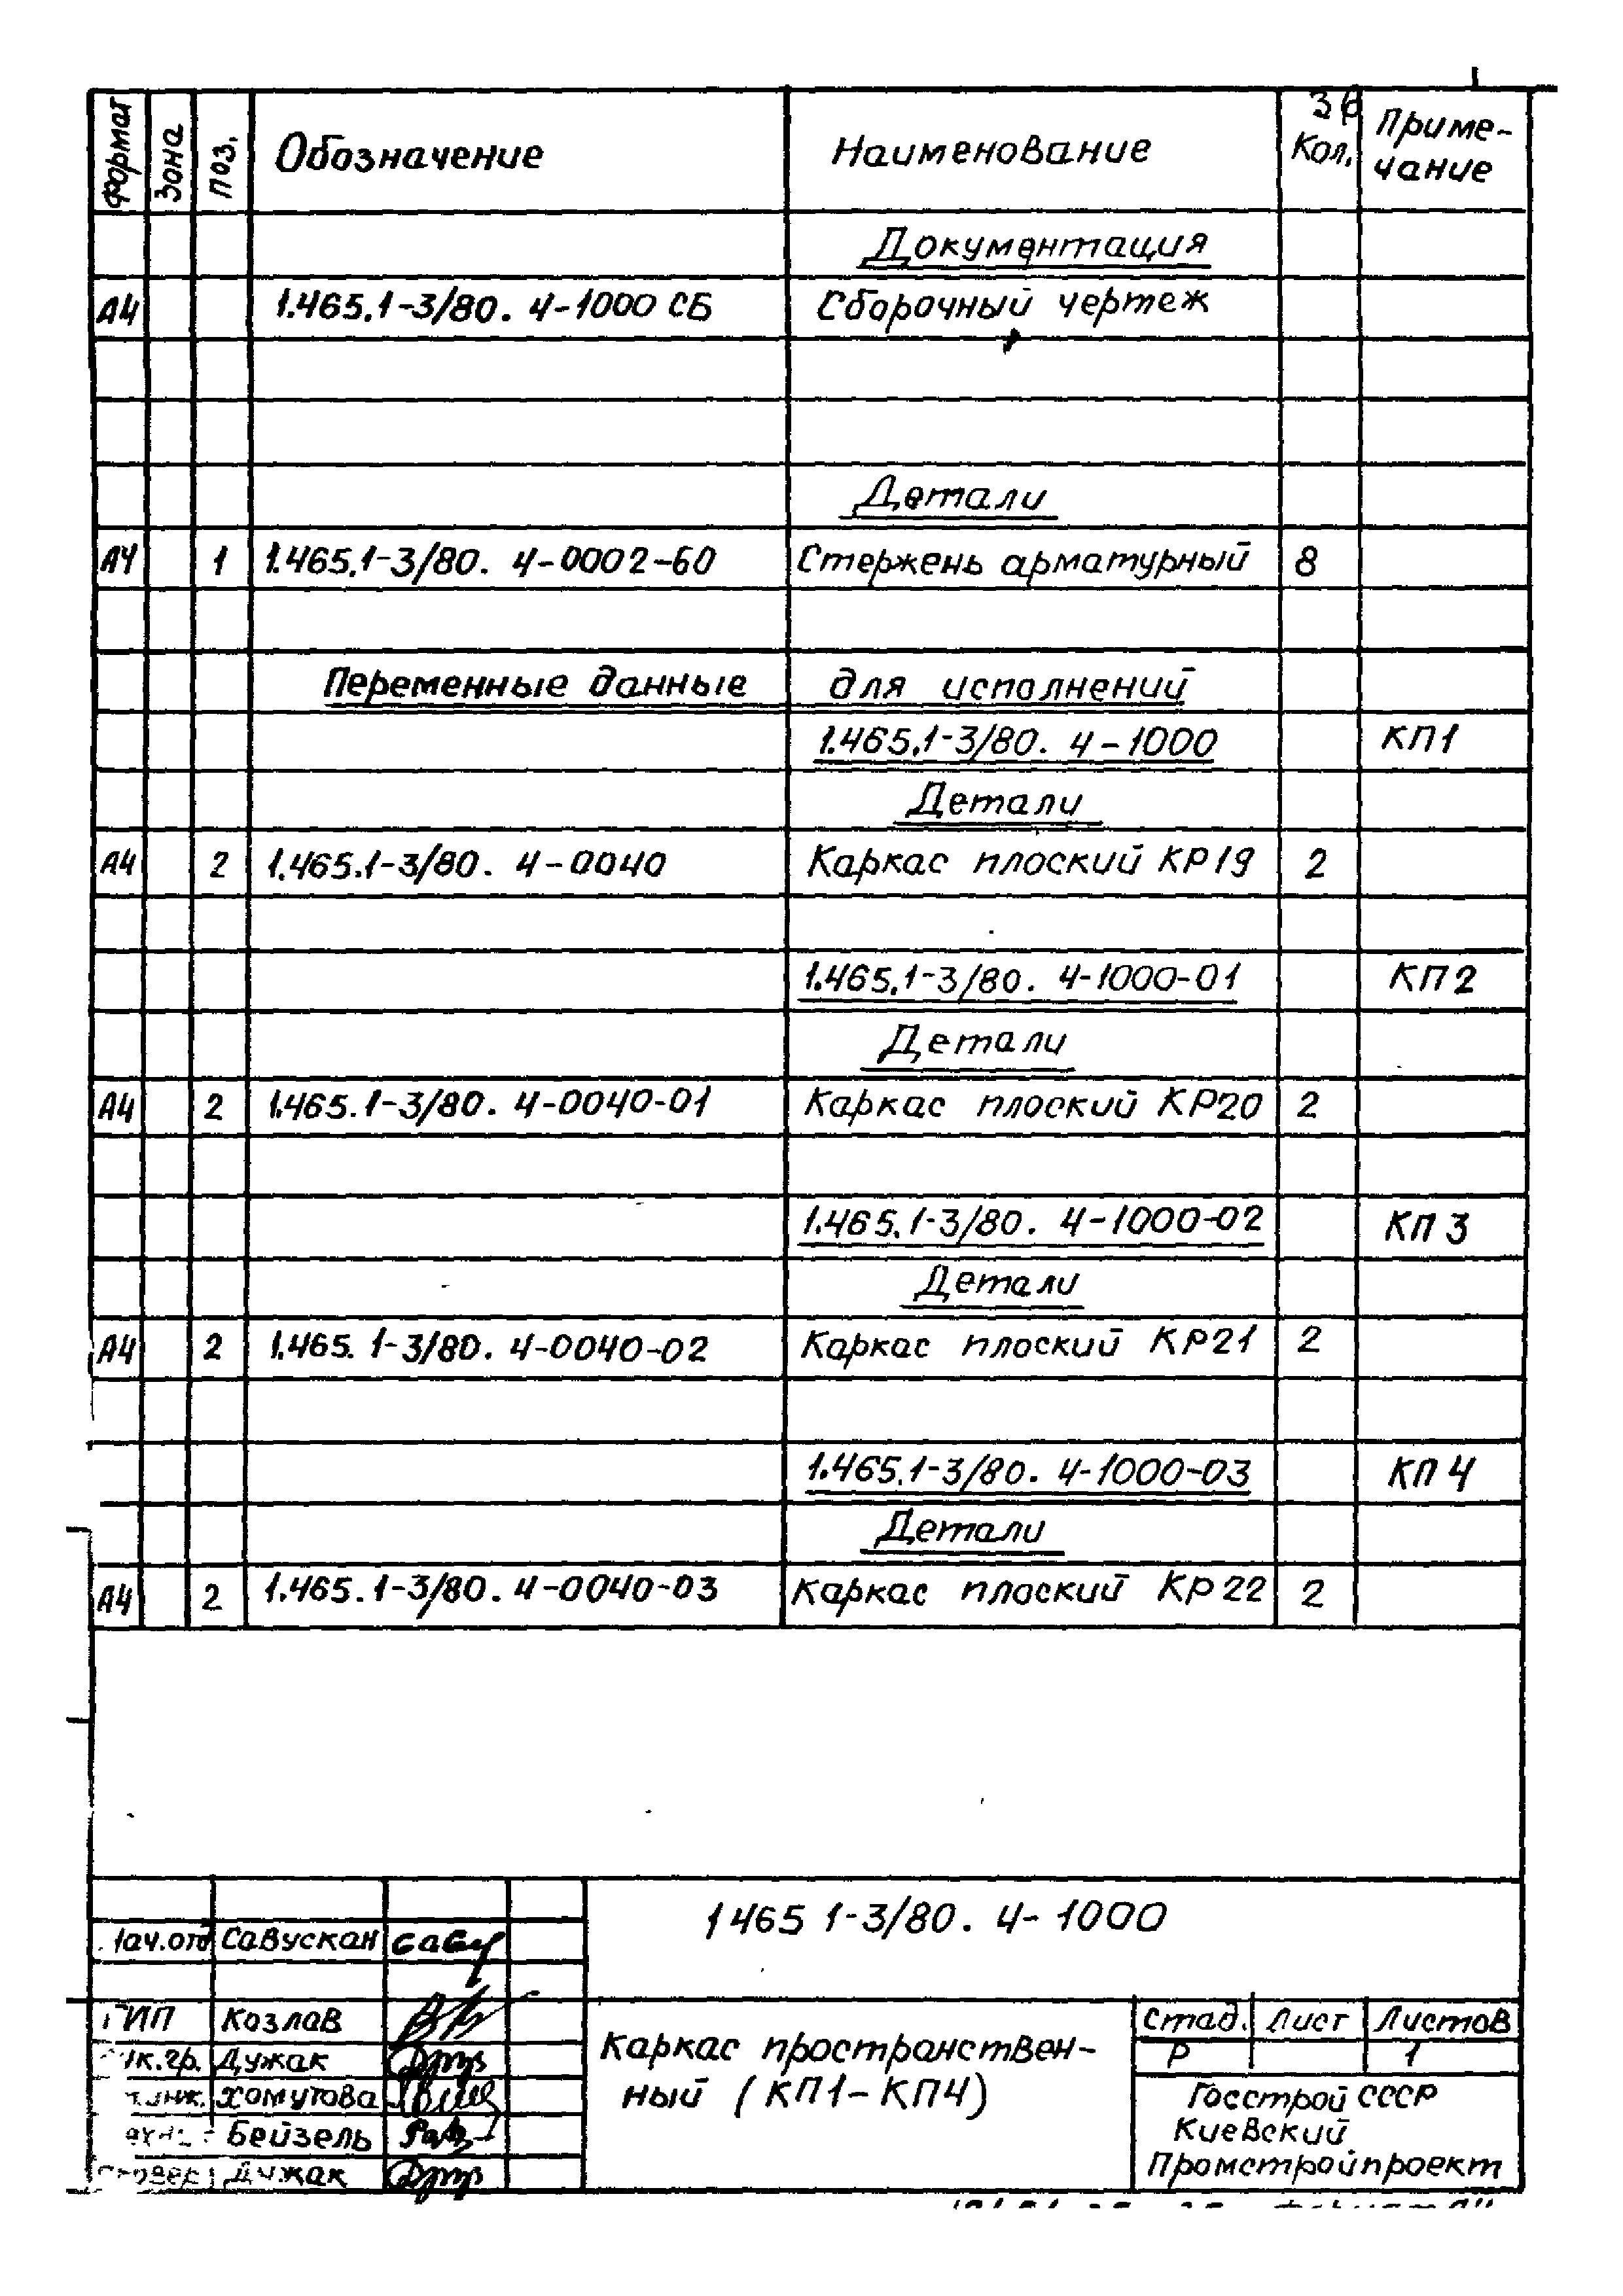 36
Формат Зона Поз. Обозначение Наименование Кол. Приме-
чание
Документация
А4 1.465.1-3/80. 4-1000 СБ Сборочный чертеж
Детали
А4 1 1.465.1-3/80. 4-0002-60 Стержень арматурный 8
Переменные данные для исполнений
1.465.1-3/80. 4-1000 КП1
Детали
А4 2 1.465.1-3/80. 4-0040 Каркас плоский КР19 2
1.465.1-3/80. 4-1000-01 КП2
Детали
А4 2 1.465.1-3/80. 4-0040-01 Каркас плоский КР20 2
1.465.1-3/80. 4-1000-02 КП3
Детали
А4 2 1.465.1-3/80. 4-0040-02 Каркас плоский КР21 2
1.465.1-3/80. 4-1000-03 КП4
Детали
А4 2 1.465.1-3/80. 4-0040-03 Каркас плоский КР22 2
1465 1-3/80. 4-1000
Нач.отд Савускан
ГИП Козлов
Рук.гр. Дужак
Хомутова
Бейзель
Провер Дужак
Каркас пространствен-
ный (КП1-КП4)
Стад. Лист Листов
Р 1
Госстрой СССР
Киевский
Промстройпроект